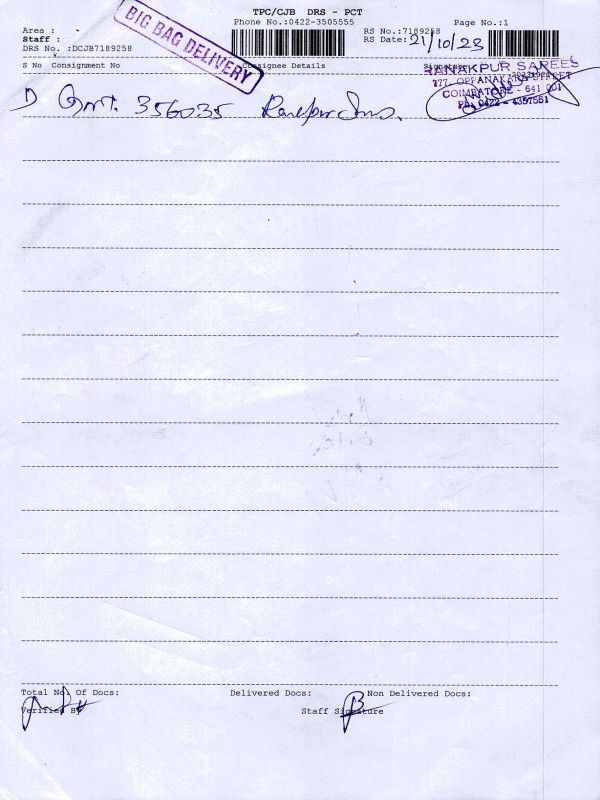 TPC/CJB DRS - PCT
BIG BAG DELIVERY
Phone No.:0422-3505555
Page No.:1
Area :
RS No.:7189258
Staff :
RS Date: 21/10/23
DRS No. :DCJB7189258
S No Consignment No
Consignee Details
Signature
RANAKPUR SAREES
777, OPPANAKARA STREET
COIMBATORE - 641 001
PH: 0422 - 4357551
356035
Total No. Of Docs:
Delivered Docs:
Non Delivered Docs:
Verified By
Staff Signature